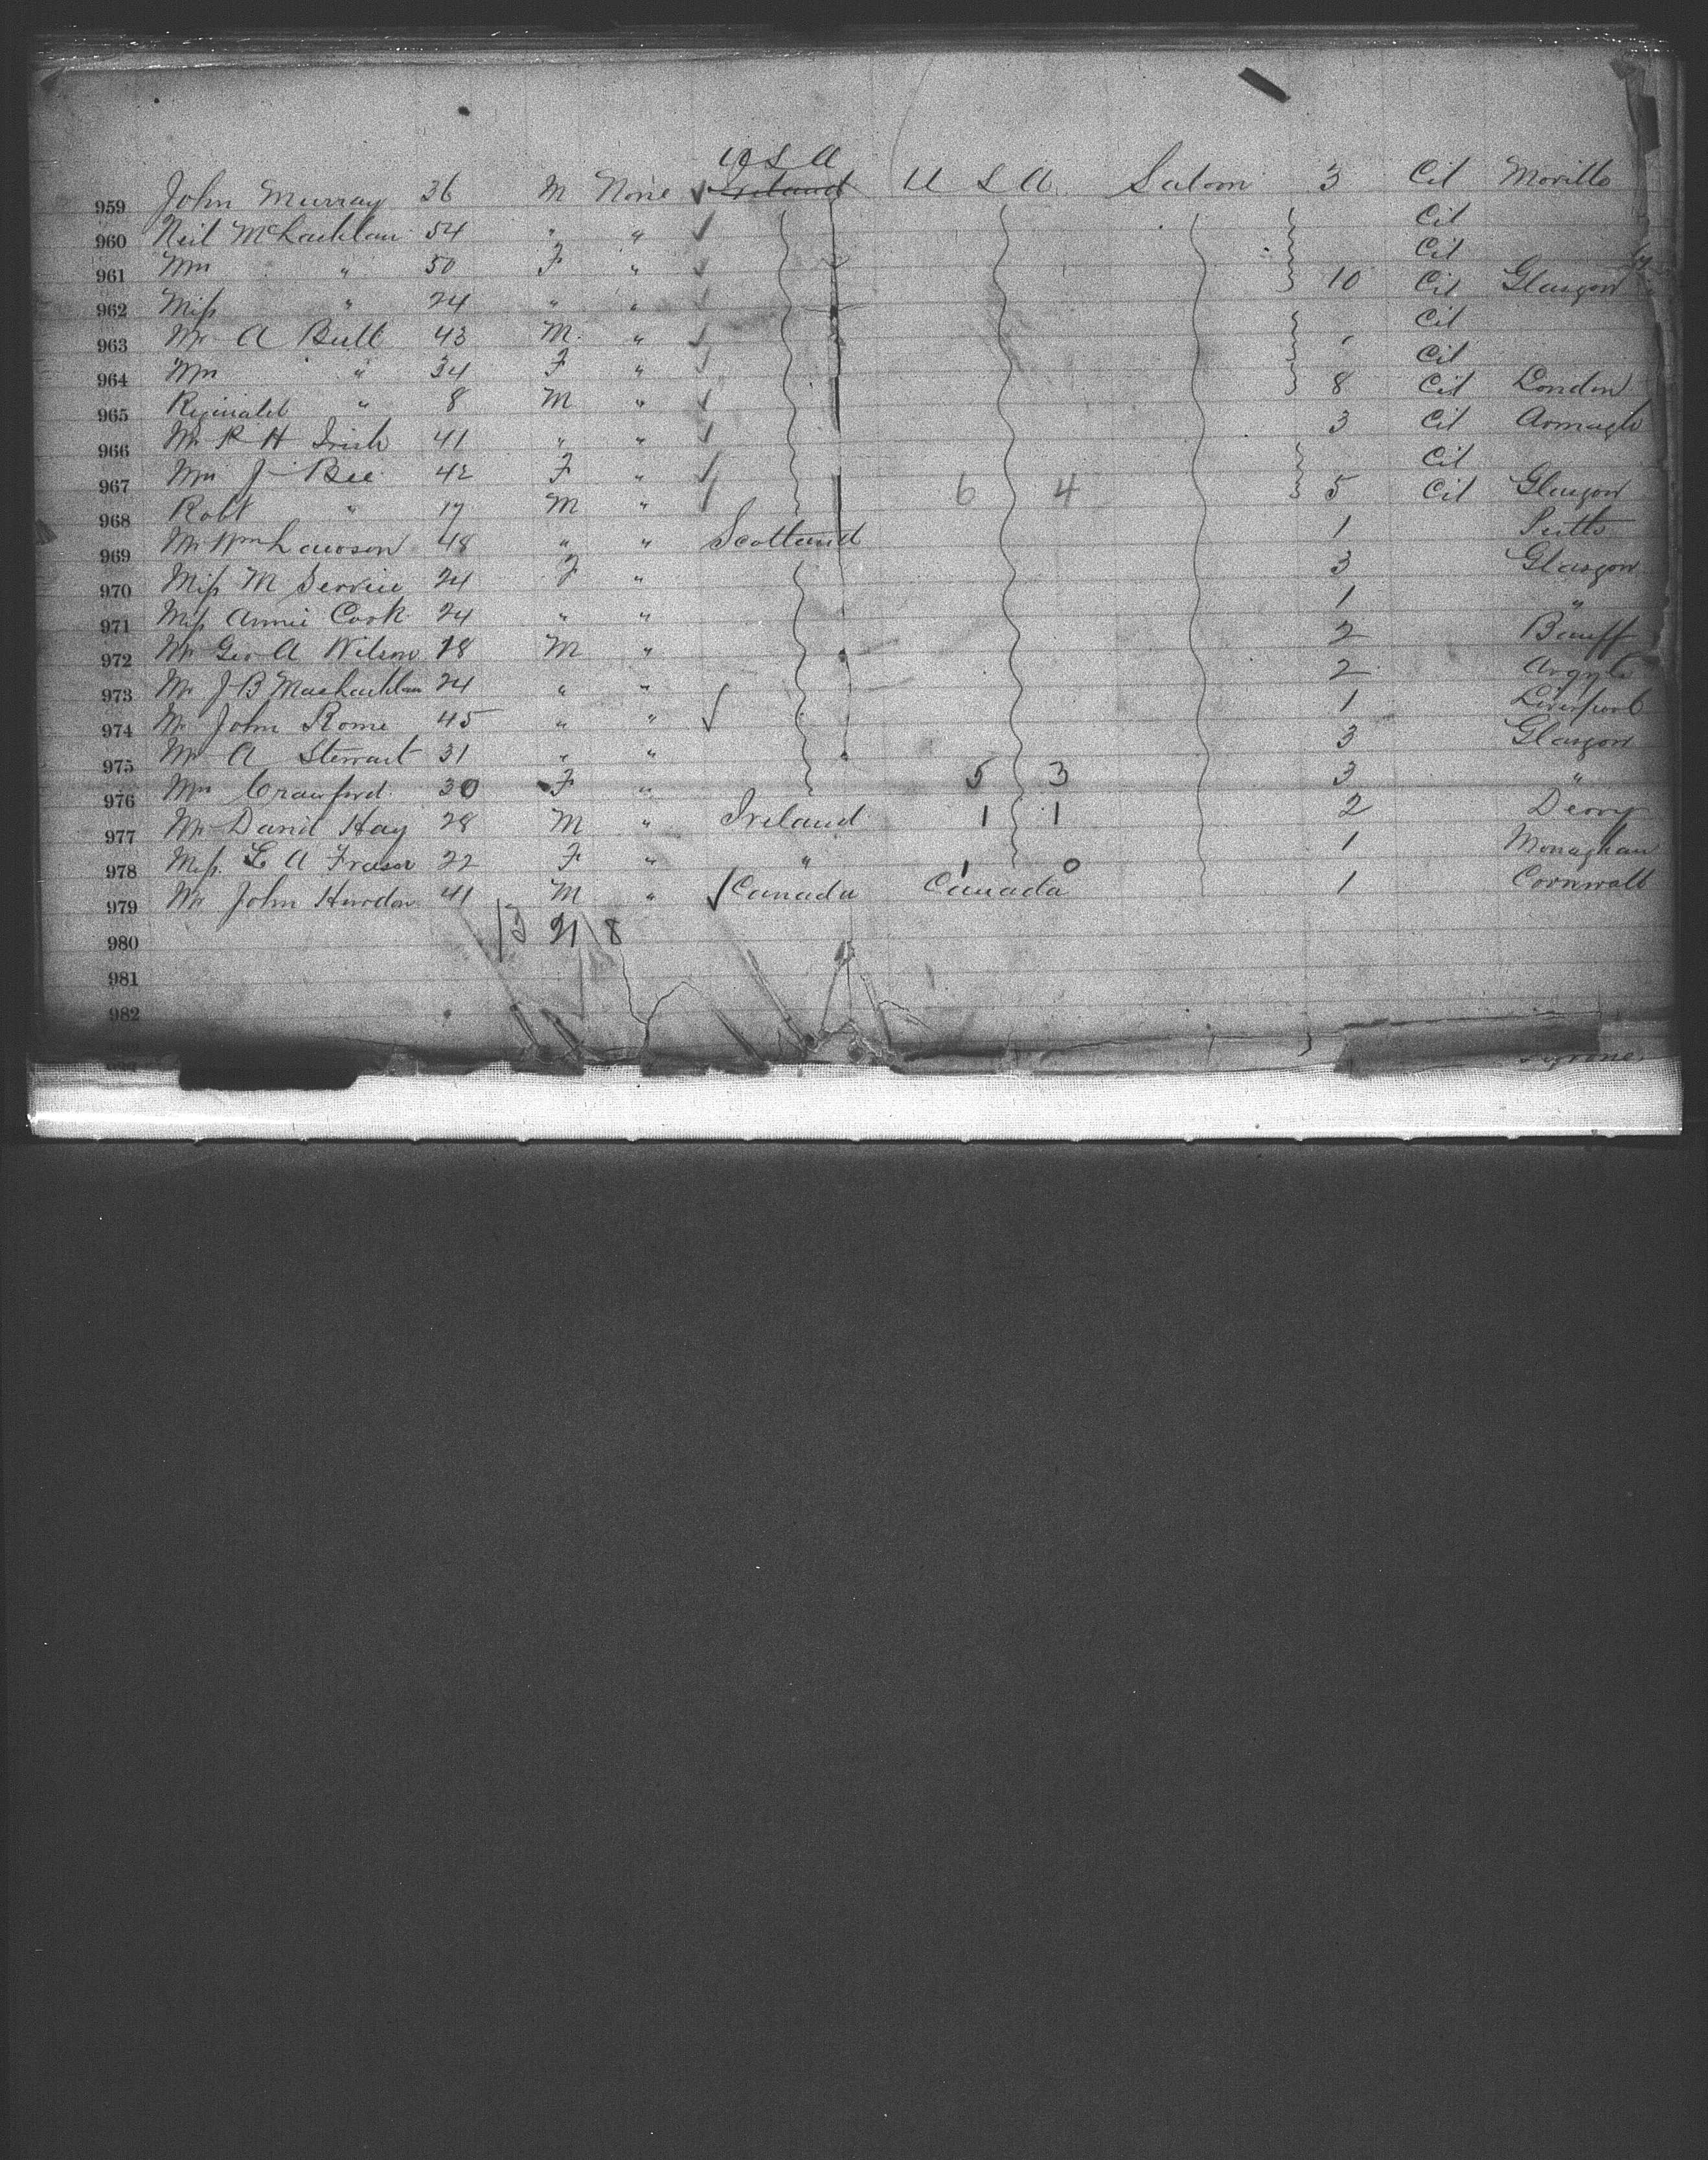 U S A
959 John Murray 36 M None ✓ Ireland U S A Saloon 3 Cit Moville
960 Neil McLachlan 54 " " ✓ Cit
961 Mrs " 50 F " ✓ Cit
962 Miss " 24 " " ✓ 10 Cit Glasgow
963 Mr A Bull 43 M. " ✓ Cit
964 Mrs " 34 F " ✓ Cit
965 Reginald " 8 M " ✓ 8 Cit London
966 Mr R H Irish 41 " " ✓ 3 Cit Armagh
967 Mrs J Bee 42 F " ✓ Cit
968 Robt " 17 M " ✓ 6 4 5 Cit Glasgow
969 Mr Wm Lawson 48 " " Scotland 1
970 Miss M Service 24 F " 3 Glasgow
971 Miss Annie Cook 24 " " 1 "
972 Mr Geo A Wilson 18 M " 2 Banff
973 Mr J B MacLachlan 24 " " 2 Argyle
974 Mr John Rome 45 " " ✓ 1 Liverpool
975 Mr A Stewart 31 " " 3 Glasgow
976 Mrs Crawford 30 F " 5 3 3 "
977 Mr David Hay 28 M " Ireland 1 1 2 Derry
978 Miss L A Fraser 22 F " " 1 0 1 Monaghan
979 Mr John Hurdon 41 M " ✓ Canada Canada 1 Cornwall
980 13 21 8
981
982